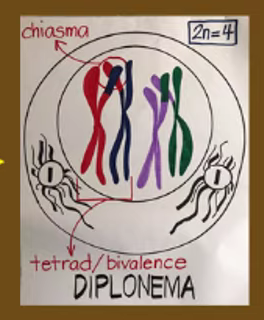 chiasma
2n=4
tetrad/bivalence
DIPLONEMA